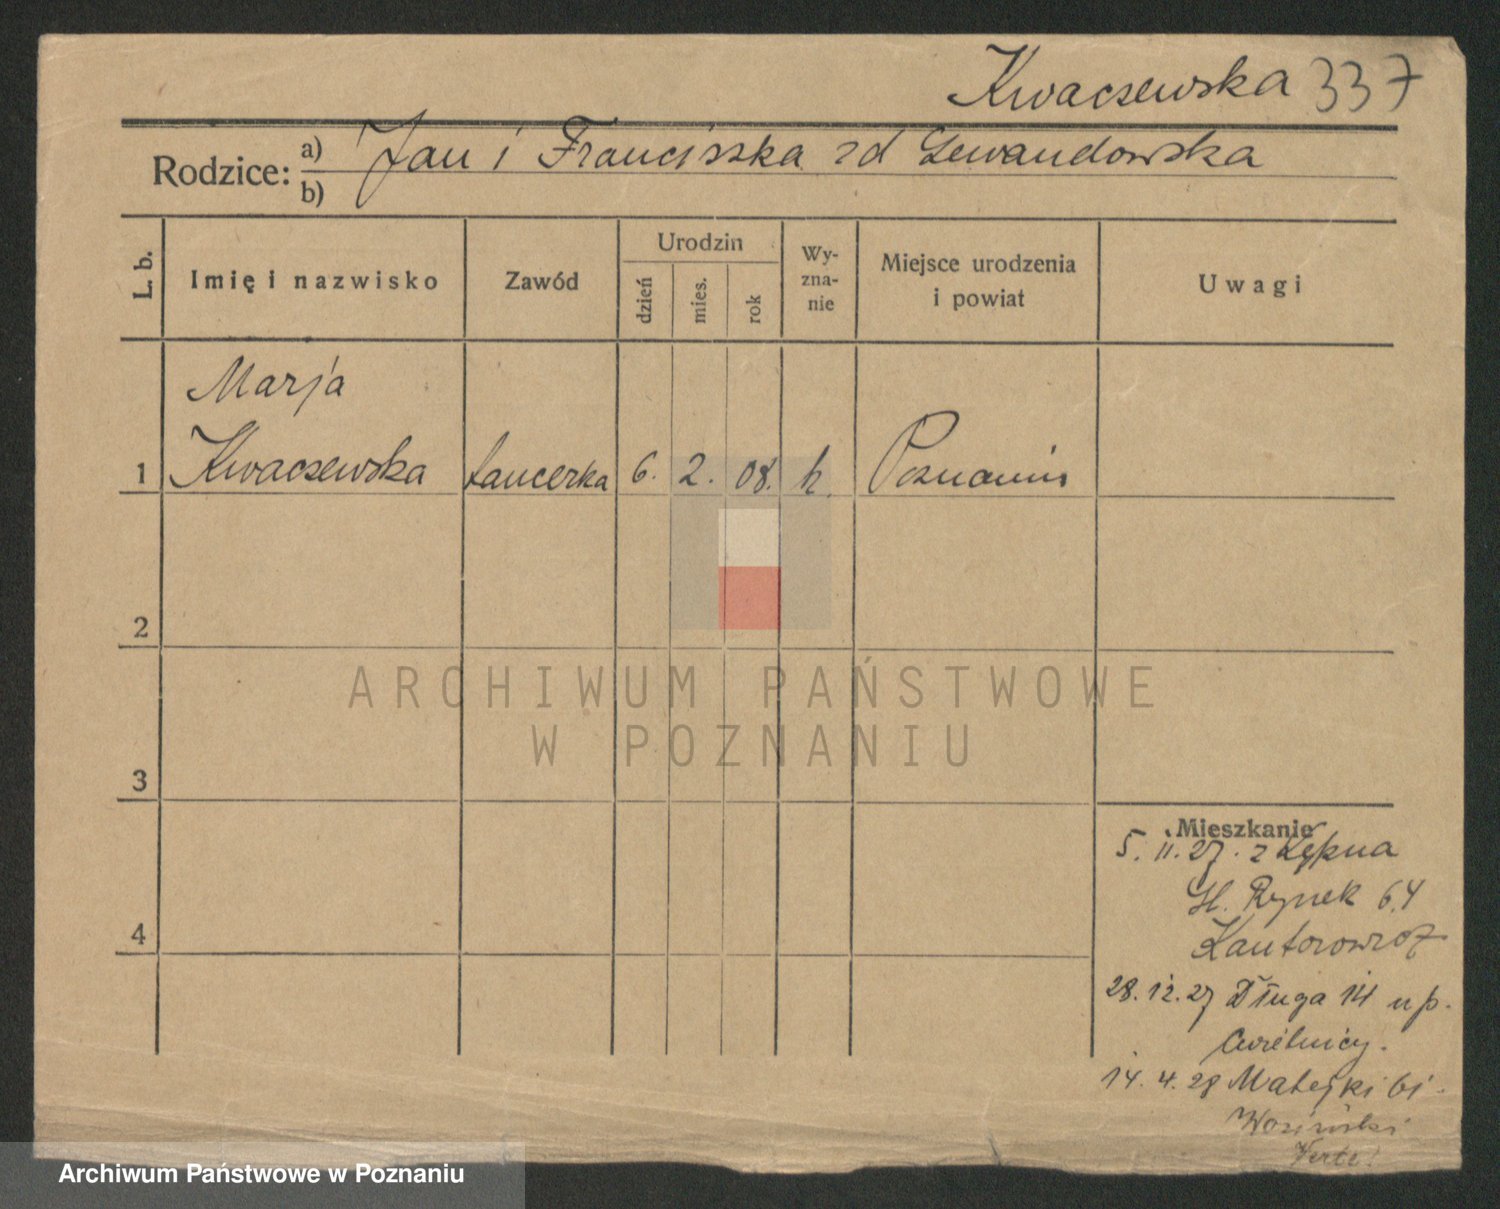 Kwaczewska 337
Rodzice: a) Jan i Franciszka zd Lewandowska
b)
L. b. Imię i nazwisko Zawód Urodzin dzień mies. rok Wy-zna-nie Miejsce urodzenia i powiat Uwagi
Marja
1 Kwaczewska tancerka 6. 2. 08. k. Poznaniu
2
3
4
Mieszkanie
5. 11. 27. z Kępna
St. Rynek 64
Kantorowicz
28. 12. 27 Długa 14 u p.
14. 4. 28 Matejki 61.
Woziński
Verte!
ARCHIWUM PAŃSTWOWE
W POZNANIU
Archiwum Państwowe w Poznaniu